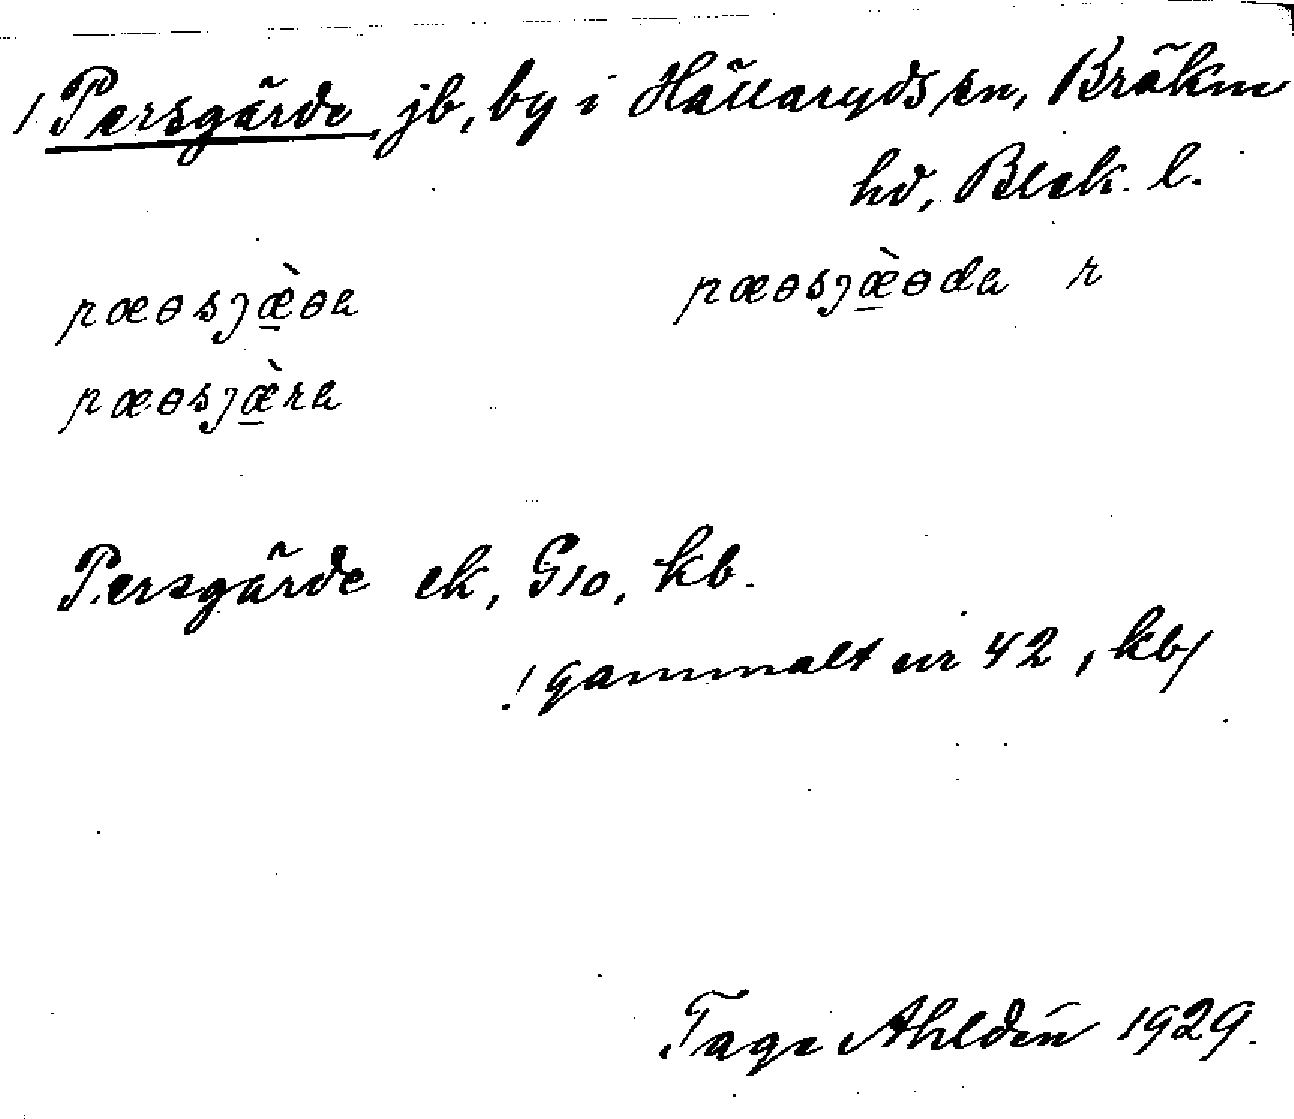 / Persgärde, jb, by i Hällaryds sn, Bräkne
hd, Blek. l.
pæɵsjæ̀ɵa pæɵsjæ̀ɵda r
pæɵsjæ̀ra
Persgärde ek, G10, kb.
/ gammalt nr 42, kb/
Tage Ahldén 1929.